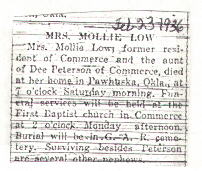 Feb 23 1936
MRS. MOLLIE LOW
Mrs. Mollie Low, former resi-
dent of Commerce and the aunt
of Dee Peterson of Commerce, died
at her home in Pawhuska, Okla., at
7 o'clock Saturday morning. Fun-
eral services will be held at the
First Baptist church in Commerce
at 2 o'clock Monday afternoon.
Burial will be in G. A. R. ceme-
tery. Surviving besides Peterson
are several other nephews.